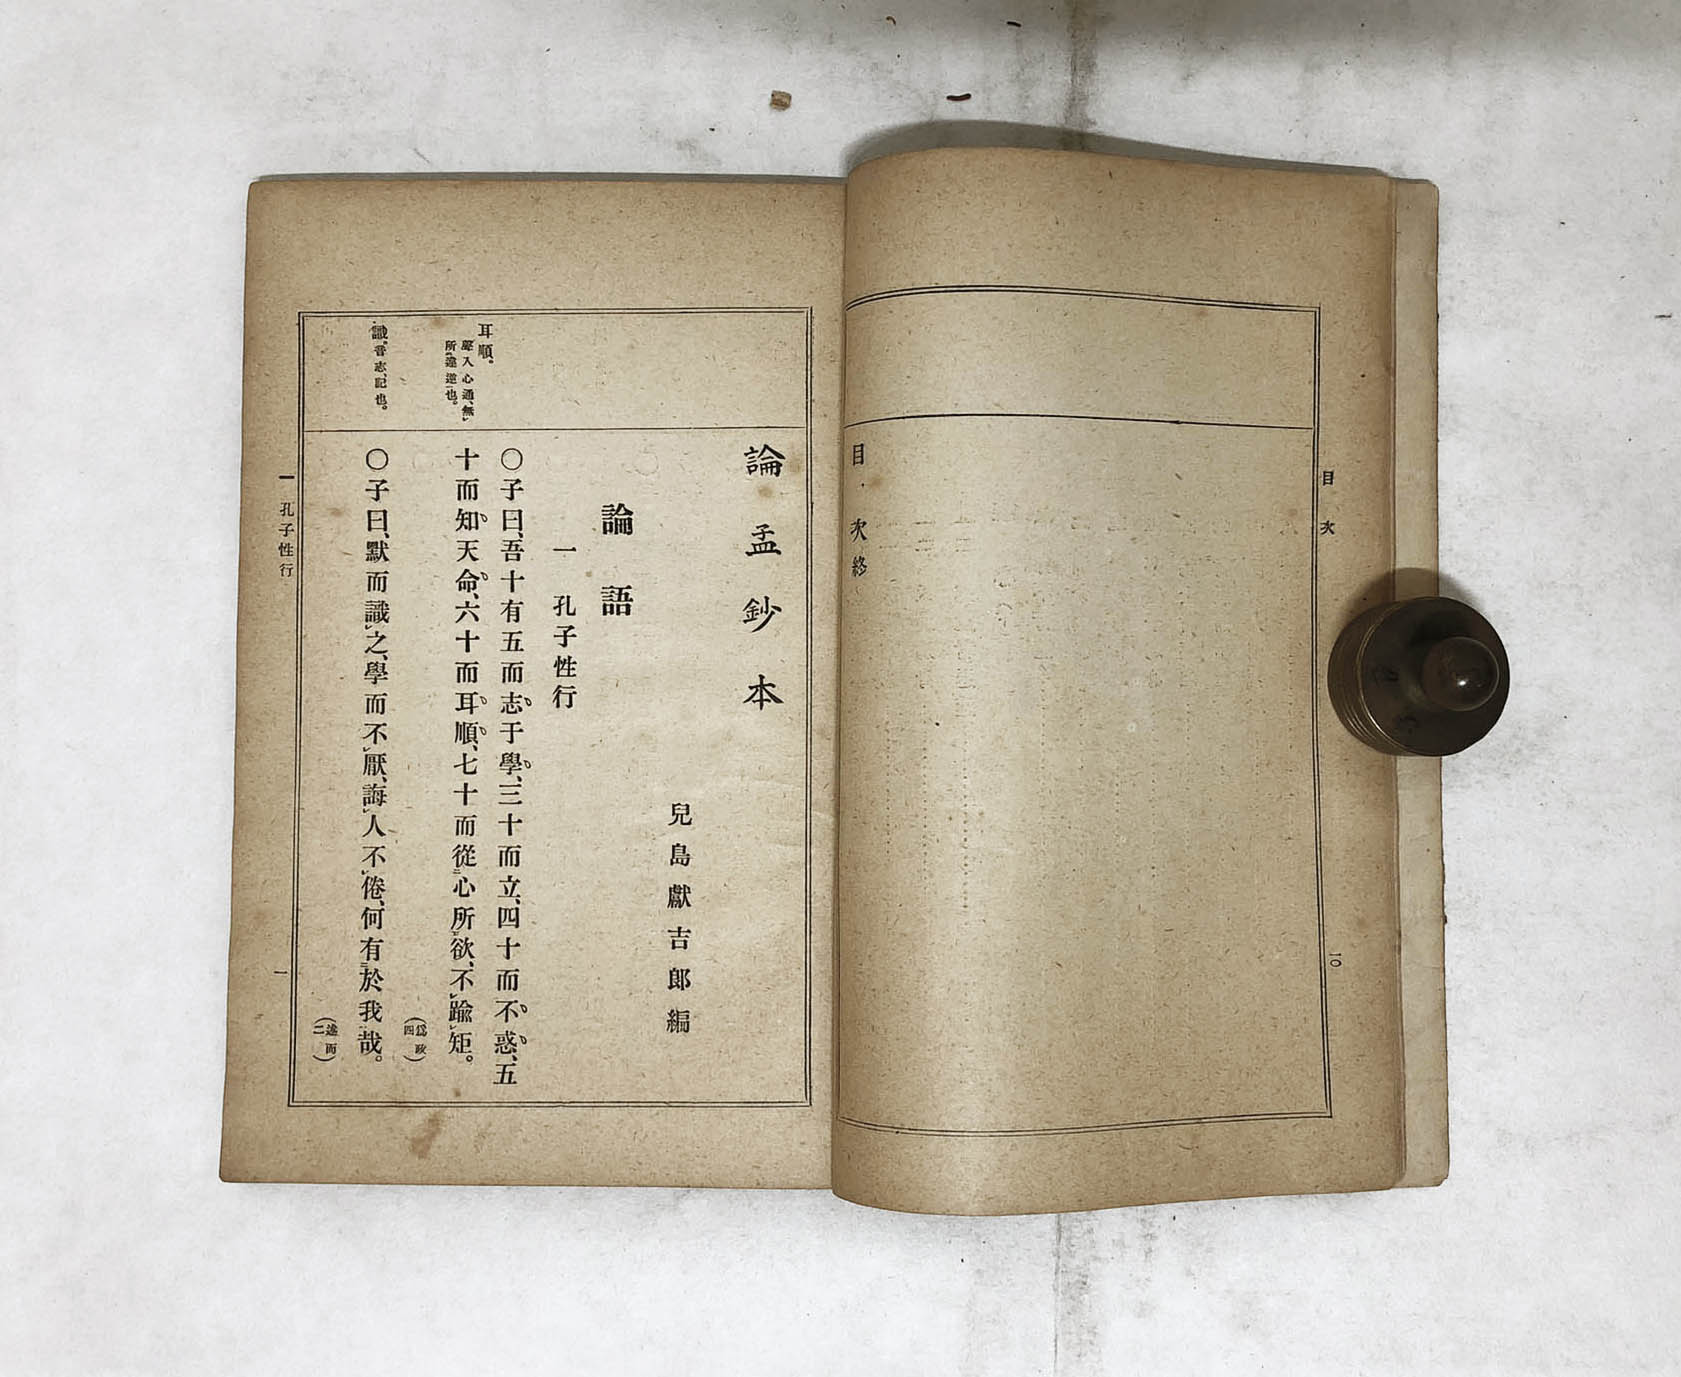 目次
一〇
目次終
論孟鈔本
兒島獻吉郎編
論語
一 孔子性行
〇子曰、吾十有五而志于學、三十而立、四十而不惑、五
十而知天命、六十而耳順、七十而從心所欲、不踰矩。
(爲政四)
〇子曰、默而識之、學而不厭、誨人不倦、何有於我哉。
(述而二)
耳順。
聲入心通、無
所違逆也。
識。音志、記也。
一 孔子性行
一